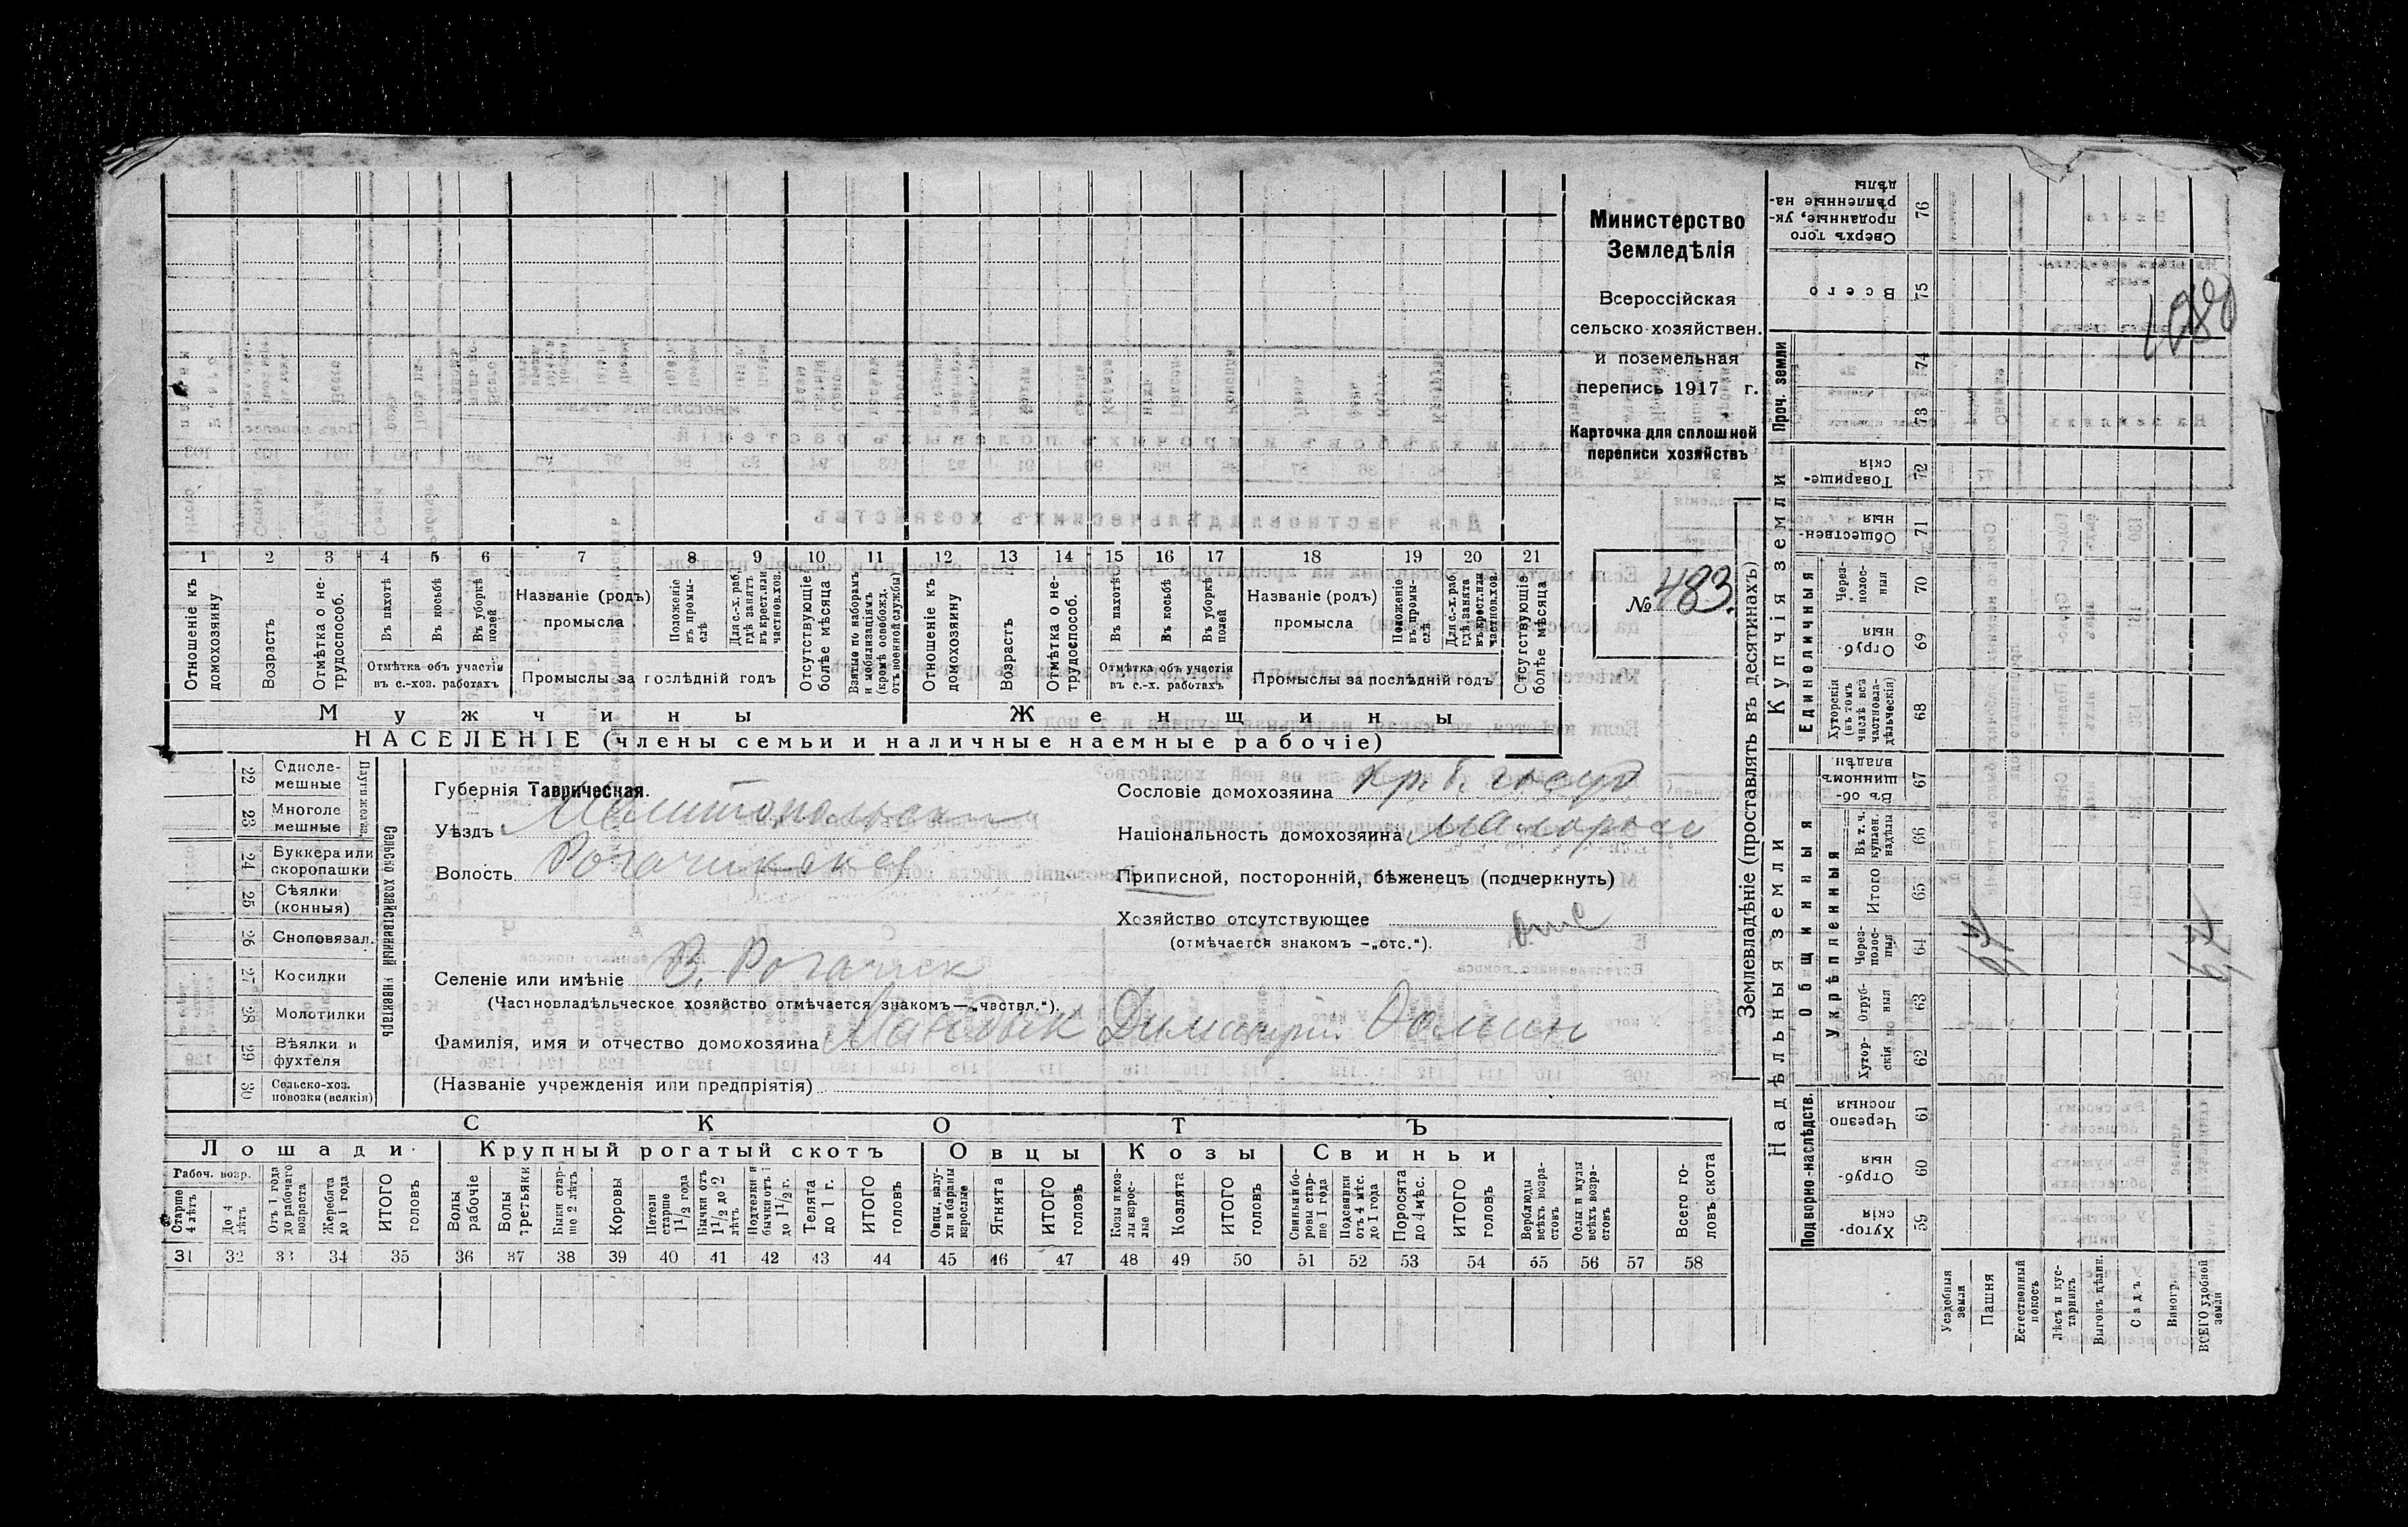 Министерство
Земледѣлія
Всероссійская
сельско-хозяйствен.
и поземельная
перепись 1917 г.
Карточка для сплошной
переписи хозяйствъ
№ 483.
1080
1 2 3 4 5 6 7 8 9 10 11 12 13 14 15 16 17 18 19 20 21
Отношеніе къ домохозяину
Возрастъ
Отмѣтка о не-трудоспособ.
Въ пахотѣ
Въ косьбѣ
Въ уборкѣ полей
Отмѣтка объ участіи
въ с.-хоз. работахъ
Названіе (родъ)
промысла
Положеніе въ промы-слѣ
Для с.-х. раб. гдѣ занятъ въ крест. или частнов. хоз.
Промыслы за послѣдній годъ
Отсутствующіе болѣе мѣсяца
Взятые по наборамъ и мобилизаціямъ (кромѣ освобожд. отъ военной службы)
Отношеніе къ домохозяину
Возрастъ
Отмѣтка о не-трудоспособ.
Въ пахотѣ
Въ косьбѣ
Въ уборкѣ полей
Отмѣтка объ участіи
въ с.-х. работахъ
Названіе (родъ)
промысла
Положеніе въ промы-слѣ
Для с.-х. раб. гдѣ занята въ крест. или частнов. хоз.
Промыслы за послѣдній годъ
Отсутствующія болѣе мѣсяца
Мужчины Женщины
НАСЕЛЕНІЕ (члены семьи и наличные наемные рабочіе)
22 Одноле-мешные
23 Многоле мешные
24 Буккера или скоропашки
25 Сѣялки (конныя)
26 Сноповязал.
27 Косилки
28 Молотилки
29 Вѣялки и фухтеля
30 Сельско-хоз. повозки (всякія)
Плуги желѣз.
Сельско хозяйственный инвентарь
Губернія Таврическая.
Уѣздъ Мелитопольск
Волость Рогачикская
Селеніе или имѣніе В. Рогачик
(Частновладѣльческое хозяйство отмѣчается знакомъ—„частвл.“).
Фамилія, имя и отчество домохозяина Димитрій
(Названіе учрежденія или предпріятія)
Сословіе домохозяина Кр. б. госуд
Національность домохозяина малоросс
Приписной, посторонній, бѣженецъ (подчеркнуть)
Хозяйство отсутствующее отс
(отмѣчается знакомъ —„отс.“).
СКОТЪ
Лошади Крупный рогатый скотъ Овцы Козы Свиньи
Рабоч. возр.
Старше 4 лѣтъ
До 4 лѣтъ
Отъ 1 года до рабочаго возраста
Жеребята до 1 года
ИТОГО головъ
Волы рабочіе
Волы третьяки
Быки стар-ше 2 лѣтъ
Коровы
Нетели старше 1½ года
Бычки отъ 1½ до 2 лѣтъ
Подтелки и бычки отъ 1 до 1½ г.
Телята до 1 г.
ИТОГО головъ
Овцы, валу-хи и бараны взрослые
Ягнята
ИТОГО головъ
Козы и коз-лы взрос-лые
Козлята
ИТОГО головъ
Свиньи и бо-ровы стар-ше 1 года
Подсвинки отъ 4 мѣс. до 1 года
Поросята до 4 мѣс.
ИТОГО головъ
Верблюды всѣхъ возра-стовъ
Ослы и мулы всѣхъ возра-стовъ
Всего го-ловъ скота
31 32 33 34 35 36 37 38 39 40 41 42 43 44 45 46 47 48 49 50 51 52 53 54 55 56 57 58
Землевладѣніе (проставлять въ десятинахъ)
Надѣльныя земли
Купчія земли
Проч. земли
Подворно-наслѣдств.
Общинныя
Укрѣпленныя
Единоличныя
59 Хутор-скія
60 Отруб-ныя
61 Черезпо лосныя
62 Хутор-скія
63 Отруб-ныя
64 Через-полос-ныя
65 Итого
66 Въ т. ч. куплен. надѣлы
67 Въ об-щинномъ владѣн.
68 Хуторскія (въ томъ числѣ всѣ частновла-дѣльческія)
69 Отруб-ныя
70 Через-полос-ныя
71 Обществен-ныя
72 Товарище-скія
73
74
75 Всего
76 Сверхъ того проданные, ук-рѣпленные на-дѣлы
Усадебная земля
Пашня
Естественный покосъ
Лѣсъ и кус-тарникъ
Выгонъ цѣлин.
Садъ
Виногр.
ВСЕГО удобной земли